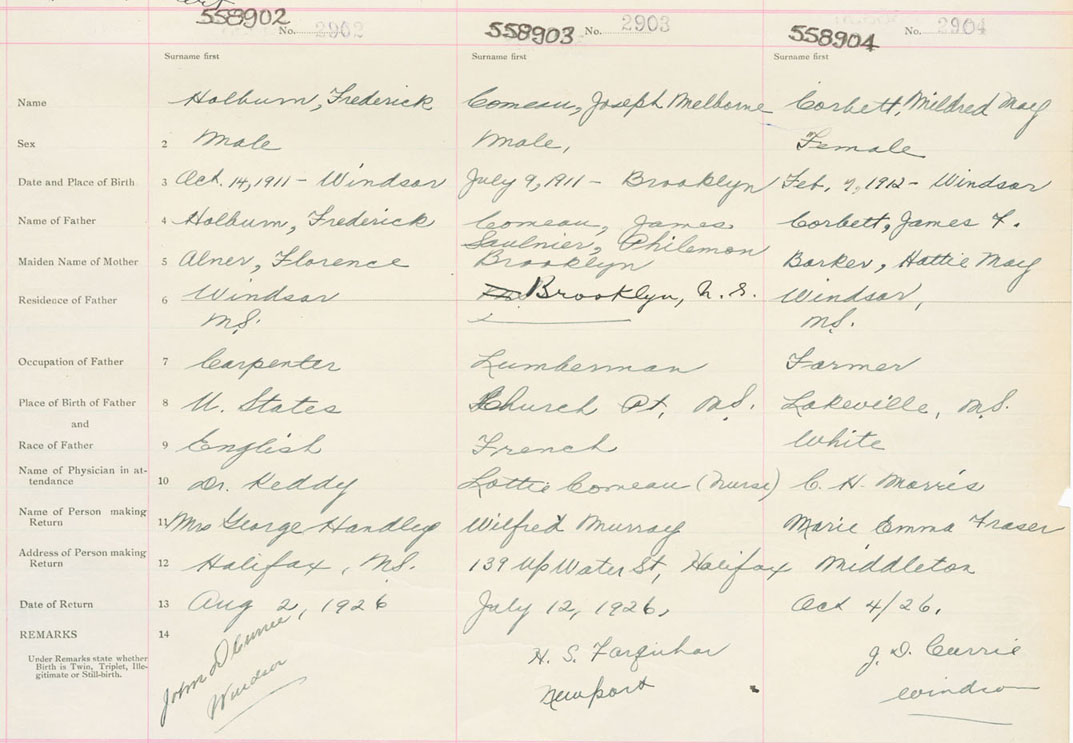 558902 No. 2902 558903 No. 2903 558904 No. 2904
Surname first Surname first Surname first
Name Holburn, Frederick Comeau, Joseph Melborne Corbett, Mildred May
Sex 2 Male Male, Female
Date and Place of Birth 3 Oct. 14, 1911 - Windsor July 9, 1911 - Brooklyn Feb. 7, 1912 - Windsor
Name of Father 4 Holburn, Frederick Comeau, James Corbett, James F.
Saulnier, Philemon
Maiden Name of Mother 5 Alner, Florence Brooklyn Barker, Hattie May
Residence of Father 6 Windsor Brooklyn, N.S. Windsor,
N.S. N.S.
Occupation of Father 7 Carpenter Lumberman Farmer
Place of Birth of Father 8 U. States Church Pt, N.S. Lakeville, N.S.
and
Race of Father 9 English French White
Name of Physician in at-
tendance 10 Dr. Reddy Lottie Comeau (Nurse) C. H. Morris
Name of Person making
Return 11 Mrs George Handley Wilfred Murray Marie Emma Fraser
Address of Person making
Return 12 Halifax, N.S. 139 Up Water St, Halifax Middleton
Date of Return 13 Aug 2, 1926 July 12, 1926, Oct 4/26.
REMARKS 14
Under Remarks state whether
Birth is Twin, Triplet, Ille-
gitimate or Still-birth.
John D Currie
Windsor
H. S. Farquhar
Newport
J. D. Currie
Windsor